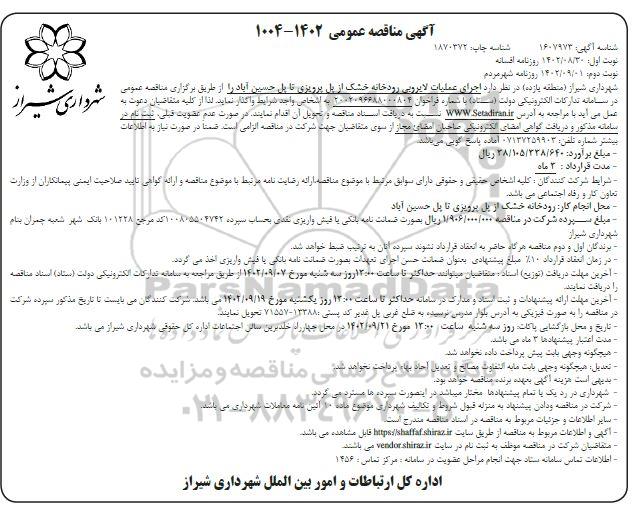 آگهی مناقصه عمومی ۱۴۰۲-۱۰۰۴
شهرداری شیراز
شناسه آگهی: ۱۶۰۷۹۷۳ شناسه چاپ: ۱۸۷۰۳۷۲
نوبت اول: ۱۴۰۲/۰۸/۳۰ روزنامه افسانه
نوبت دوم: ۱۴۰۲/۰۹/۰۱ روزنامه شهرمردم
شهرداری شیراز (منطقه یازده) در نظر دارد اجرای عملیات لایروبی رودخانه خشک از پل پرویزی تا پل حسین آباد را از طریق برگزاری مناقصه عمومی
در سامانه تدارکات الکترونیکی دولت (ستاد) با شماره فراخوان ۲۰۰۲۰۹۶۶۸۸۰۰۰۸۰۴ به اشخاص واجد شرایط واگذار نماید. لذا از کلیه متقاضیان دعوت به
عمل می آید با مراجعه به آدرس WWW.Setadiran.ir نسبت به دریافت اسناد مناقصه و تحویل آن اقدام نمایند. در صورت عدم عضویت قبلی، ثبت نام در
سامانه مذکور و دریافت گواهی امضای الکترونیکی صاحبان امضای مجاز از سوی متقاضیان جهت شرکت در مناقصه الزامی است. ضمنا در صورت نیاز به اطلاعات
بیشتر شماره تلفن: ۰۷۱۳۷۲۵۹۹۰۳ آماده پاسخ گویی می‌باشد.
- مبلغ برآورد: ۳۸/۱۰۵/۳۳۸/۶۴۰ ریال
- مدت قرارداد : ۳ ماه
- شرایط شرکت کنندگان : کلیه اشخاص حقیقی و حقوقی دارای سوابق مرتبط با موضوع مناقصه،ارائه رضایت نامه مرتبط با موضوع مناقصه و ارائه گواهی تایید صلاحیت ایمنی پیمانکاران از وزارت
تعاون کار و رفاه اجتماعی می باشد.
- محل انجام کار: رودخانه خشک از پل پرویزی تا پل حسین آباد
- مبلغ سپرده شرکت در مناقصه ۱/۹۰۶/۰۰۰/۰۰۰ ریال بصورت ضمانت نامه بانکی یا فیش واریزی نقدی بحساب سپرده ۱۰۰۸۰۵۵۰۴۷۴۲کد مرجع ۱۰۱۲۲۸ بانک شهر شعبه چمران بنام
شهرداری شیراز
- برندگان اول و دوم مناقصه هرگاه حاضر به انعقاد قرارداد نشوند سپرده آنان به ترتیب ضبط خواهد شد.
- در زمان انعقاد قرارداد ۱۰٪ مبلغ پیشنهادی بعنوان ضمانت حسن اجرای تعهدات بصورت ضمانت نامه بانکی یا فیش واریزی اخذ می گردد.
- آخرین مهلت دریافت (توزیع) اسناد : متقاضیان میتوانند حداکثر تا ساعت ۱۳:۰۰روز سه شنبه مورخ ۱۴۰۲/۰۹/۰۷ از طریق مراجعه به سامانه تدارکات الکترونیکی دولت (ستاد) اسناد مناقصه
را دریافت نمایند.
- آخرین مهلت ارائه پیشنهادات و ثبت اسناد و مدارک در سامانه حداکثر تا ساعت ۱۳:۰۰ روز یکشنبه مورخ ۱۴۰۲/۰۹/۱۹ می باشد. شرکت کنندگان می بایست تا تاریخ مذکور سپرده شرکت
در مناقصه را به صورت فیزیکی به آدرس بلوار مدرس نرسیده به ضلع غربی پل غدیر کد پستی :۱۳۳۸۸-۷۱۵۵۷ تحویل نمایند.
- تاریخ و محل بازگشایی پاکات: روز سه شنبه ساعت ۱۳:۰۰ مورخ ۱۴۰۲/۰۹/۲۱ در محل چهارراه خلدبرین سالن اجتماعات اداره کل حقوقی شهرداری شیراز می باشد.
- مدت اعتبار پیشنهادها ۳ ماه می باشد.
- هیچگونه وجهی بابت پیش پرداخت داده نخواهد شد.
- تعدیل: هیچگونه وجهی بابت مابه التفاوت مصالح و تعدیل آحاد بهاء پرداخت نخواهد شد.
- بدیهی است هزینه آگهی بعهده برنده مناقصه خواهد بود.
- شهرداری در رد یک یا تمام پیشنهادها مختار میباشد در اینصورت سپرده ها مسترد می گردد.
- شرکت در مناقصه ودادن پیشنهاد به منزله قبول شروط و تکالیف شهرداری موضوع ماده ۱۰ آئین نامه معاملات شهرداری می باشد.
- سایر اطلاعات و جزئیات مربوط به مناقصه در اسناد مناقصه مندرج است.
- آگهی و اطلاعات مربوط به مناقصه از طریق سایت https://shaffaf.shiraz.ir قابل مشاهده می باشد.
- متقاضیان شرکت در مناقصه موظف به ثبت نام در سایت vendor.shiraz.ir می باشند.
- اطلاعات تماس سامانه ستاد جهت انجام مراحل عضویت در سامانه : مرکز تماس : ۱۴۵۶
اداره کل ارتباطات و امور بین الملل شهرداری شیراز
ParsNamadData